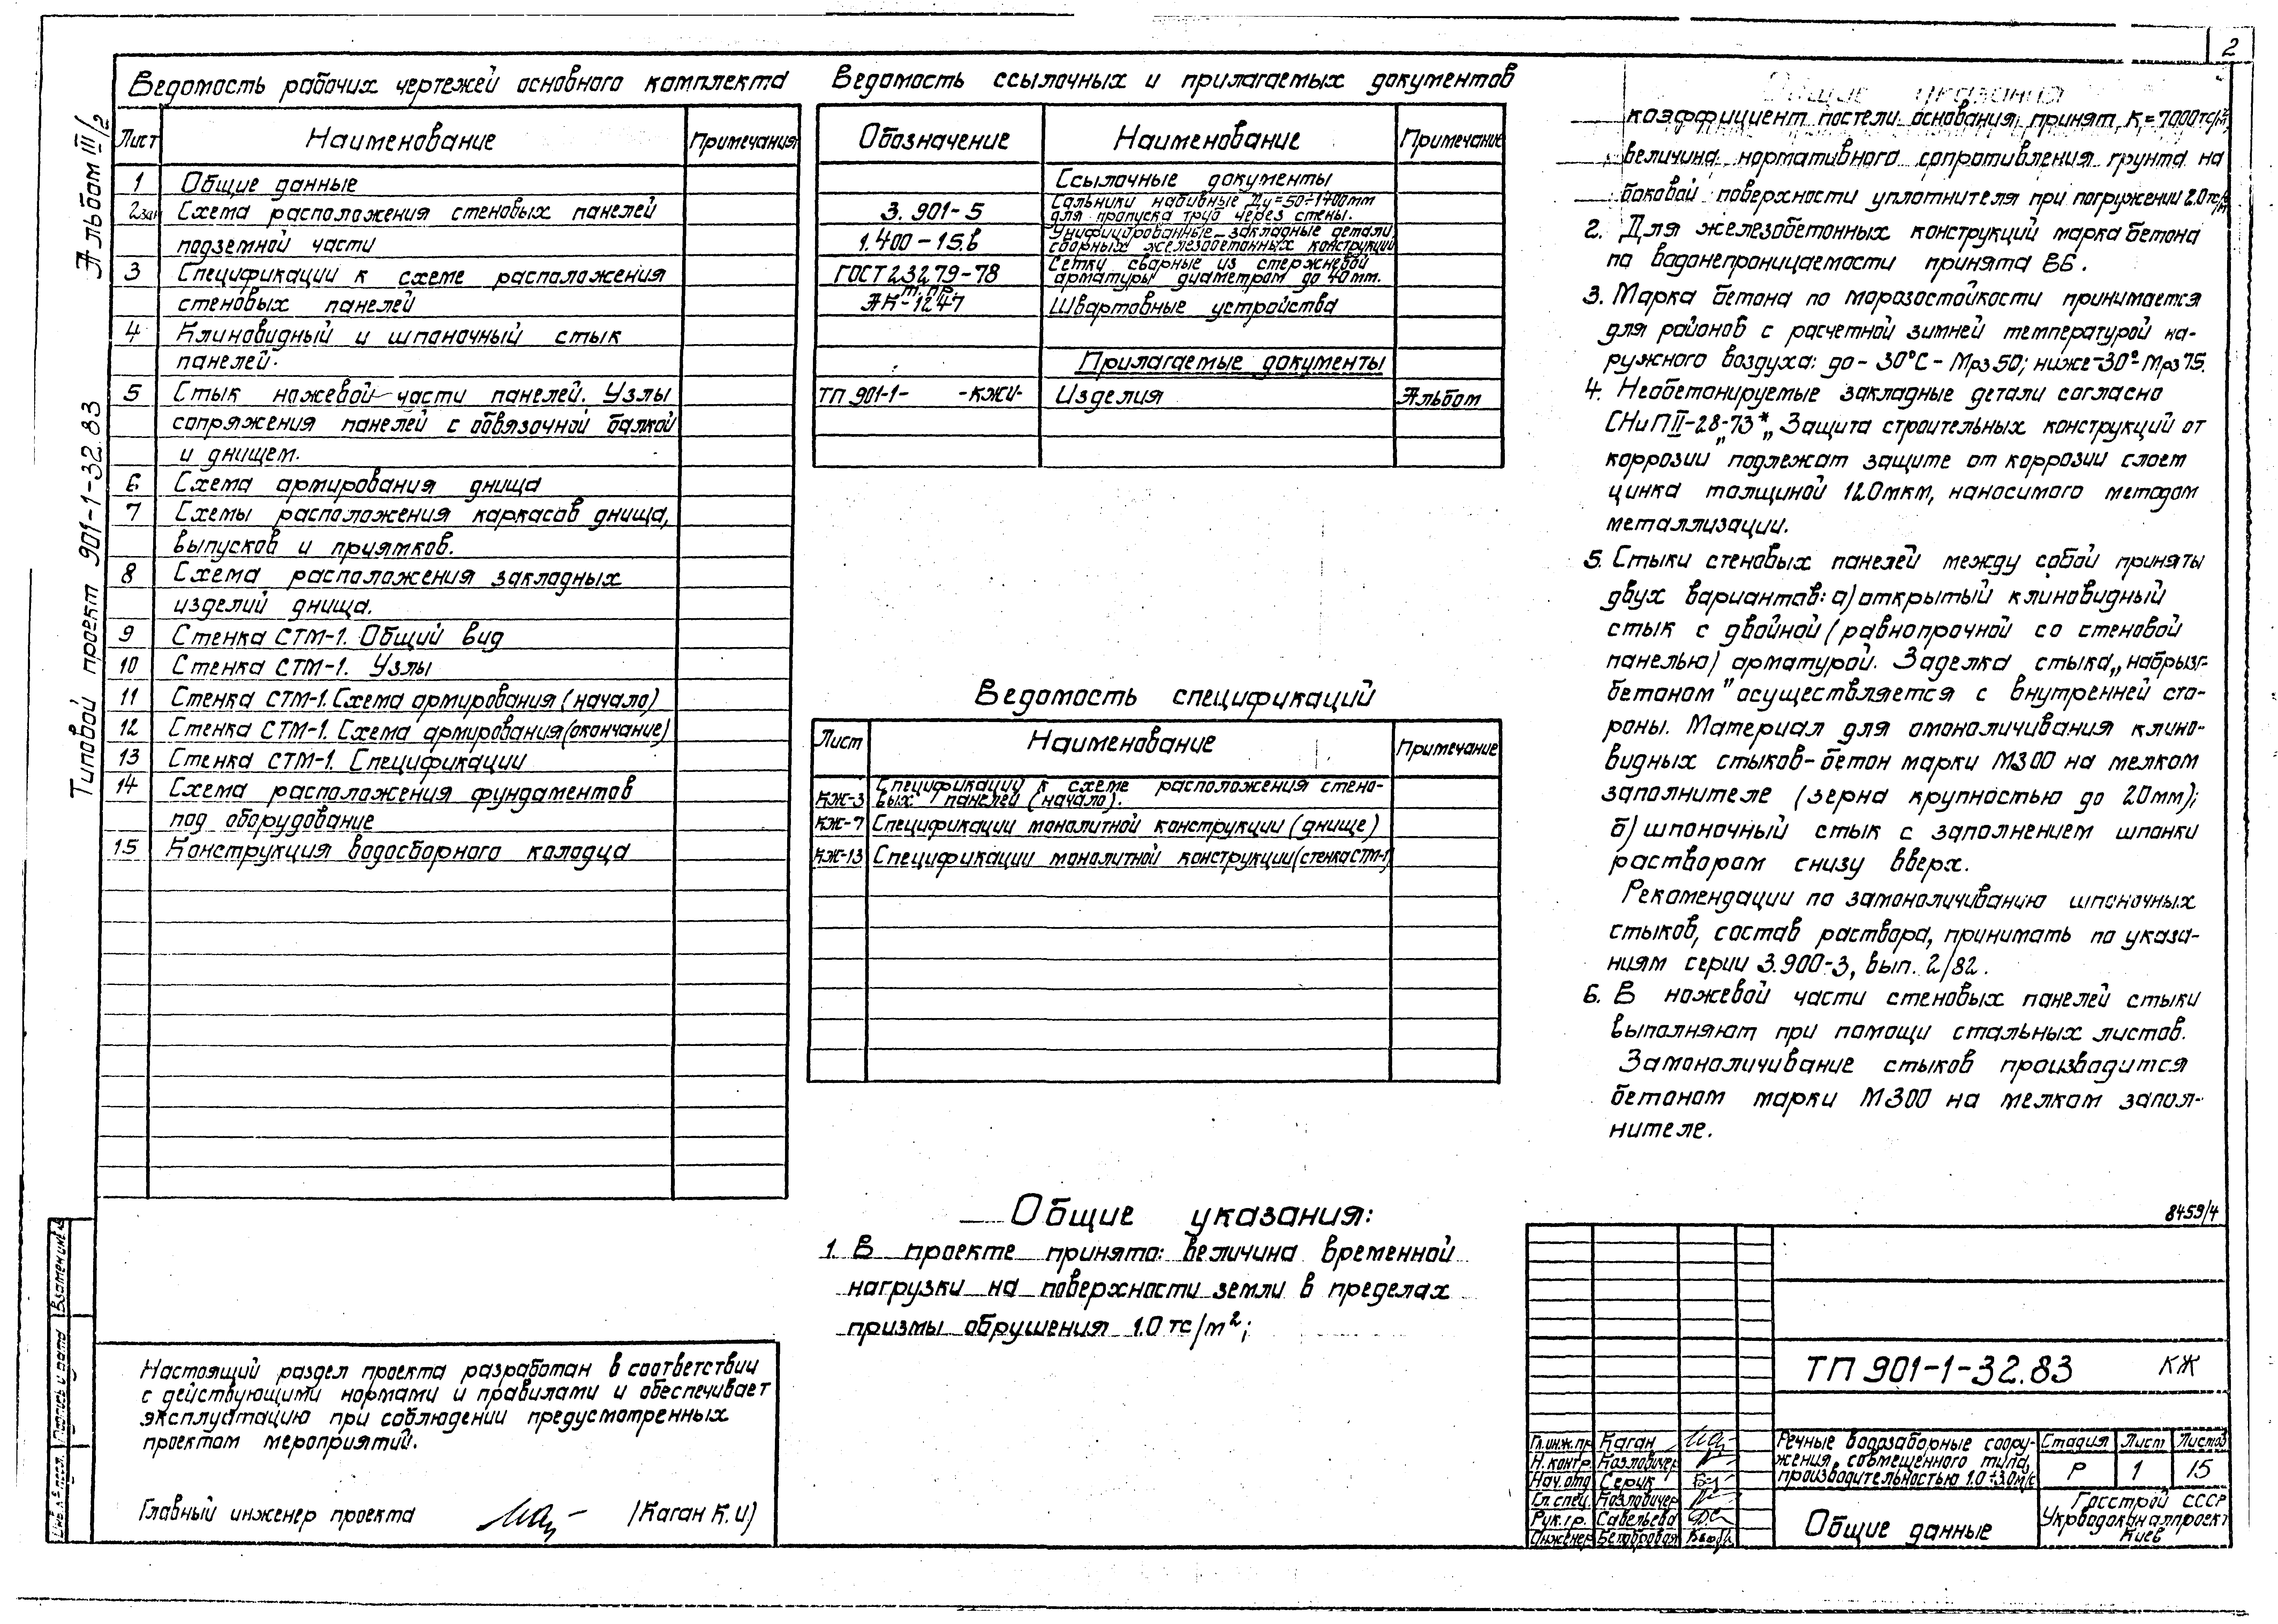 2
Альбом III/2
Типовой проект 901-1-32.83
Ведомость рабочих чертежей основного комплекта
Лист Наименование Примечания
1 Общие данные
2зан Схема расположения стеновых панелей
подземной части
3 Спецификации к схеме расположения
стеновых панелей
4 Клиновидный и шпоночный стык
панелей.
5 Стык ножевой части панелей. Узлы
сопряжения панелей с обвязочной балкой
и днищем.
6 Схема армирования днища
7 Схемы расположения каркасов днища,
выпусков и приямков.
8 Схема расположения закладных
изделий днища.
9 Стенка СТМ-1. Общий вид
10 Стенка СТМ-1. Узлы
11 Стенка СТМ-1. Схема армирования (начало)
12 Стенка СТМ-1. Схема армирования (окончание)
13 Стенка СТМ-1. Спецификации
14 Схема расположения фундаментов
под оборудование
15 Конструкция водосборного колодца
Настоящий раздел проекта разработан в соответствии
с действующими нормами и правилами и обеспечивает
эксплуатацию при соблюдении предусмотренных
проектом мероприятий.
Главный инженер проекта (Каган К.И)
Ведомость ссылочных и прилагаемых документов
Обозначение Наименование Примечание
Ссылочные документы
3.901-5 Сальники набивные Ду=50÷1400мм
для пропуска труб через стены.
1.400-15.в Унифицированные закладные детали
сборных железобетонных конструкций
ГОСТ 23279-78 Сетки сварные из стержневой
арматуры диаметром до 40мм.
т.пр.
ЭК-1247 Швартовные устройства
Прилагаемые документы
ТП 901-1- -КЖИ- Изделия Альбом
Ведомость спецификаций
Лист Наименование Примечание
КЖ-3 Спецификации к схеме расположения стено-
вых панелей (начало).
КЖ-7 Спецификации монолитной конструкции (днище)
КЖ-13 Спецификации монолитной конструкции (стенка СТМ-1)
Общие указания:
1. В проекте принято: величина временной
нагрузки на поверхности земли в пределах
призмы обрушения 1.0 тс/м²;
Общие указания
коэффициент постели основания принят K=7000тс/м³,
величина нормативного сопротивления грунта на
боковой поверхности уплотнителя при погружении 2.0тс/м²
2. Для железобетонных конструкций марка бетона
по водонепроницаемости принята В6.
3. Марка бетона по морозостойкости принимается
для районов с расчетной зимней температурой на-
ружного воздуха: до -30°С - Мрз 50; ниже -30° - Мрз 75.
4. Необетонируемые закладные детали согласно
СНиП II-28-73* „Защита строительных конструкций от
коррозии" подлежат защите от коррозии слоем
цинка толщиной 120мкм, наносимого методом
металлизации.
5. Стыки стеновых панелей между собой приняты
двух вариантов: а) открытый клиновидный
стык с двойной (равнопрочной со стеновой
панелью) арматурой. Заделка стыка „набрызг-
бетоном" осуществляется с внутренней сто-
роны. Материал для омоноличивания клино-
видных стыков-бетон марки М300 на мелком
заполнителе (зерна крупностью до 20мм);
б) шпоночный стык с заполнением шпонки
раствором снизу вверх.
Рекомендации по замоноличиванию шпоночных
стыков, состав раствора, принимать по указа-
ниям серии 3.900-3, вып. 2/82.
6. В ножевой части стеновых панелей стыки
выполняют при помощи стальных листов.
Замоноличивание стыков производится
бетоном марки М300 на мелком запол-
нителе.
8459/4
ТП 901-1-32.83 КЖ
Гл.инж.пр Каган
Н.контр. Козловичер
Нач.отд Серик
Гл.спец. Козловичер
Рук.гр. Савельева
Инженер
Речные водозаборные соору-
жения совмещенного типа,
производительностью 1.0÷3.0м³/с
Стадия Лист Листов
Р 1 15
Общие данные
Госстрой СССР
Укрводоканалпроект
Киев
Инв.№подл. Подпись и дата Взамен инв.№